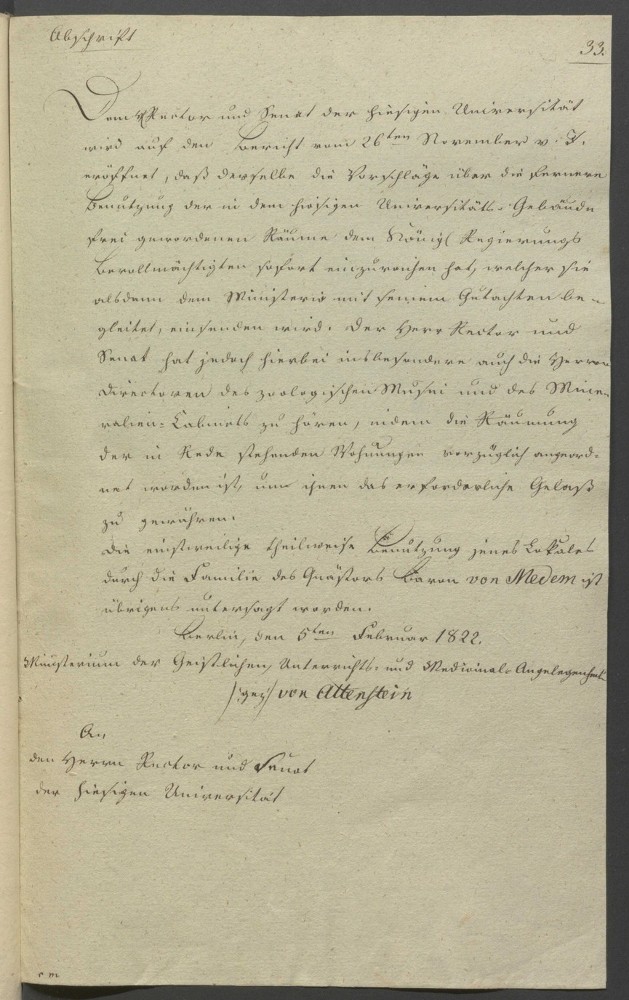 Abschrift
33.
Dem Rector und Senat der hiesigen Universität
wird auf den Bericht vom 26ten November v. J.
eröffnet, daß derselbe die Vorschläge über die fernere
Benutzung der in dem hiesigen Universitäts-Gebäude
frei gewordenen Räume dem Königl Regierungs
Bevollmächtigten sofort einzureichen hat, welcher sie
alsdenn dem Ministerio mit seinem Gutachten be-
gleitet, einsenden wird. Der Herr Rector und
Senat hat jedoch hierbei insbesondere auch die Herren
Directoren des zoologischen Musei und des Mine-
ralien-Cabinets zu hören, indem die Räumung
der in Rede stehenden Wohnungen vorzüglich angeord-
net worden ist, um ihnen das erforderliche Gelaß
zu gewähren.
Die einstweilige theilweise Benutzung jenes Lokales
durch die Familie des Quästors Baron von Medem ist
übrigens untersagt worden.
Berlin, den 5ten Februar 1822.
Ministerium der Geistlichen, Unterrichts- und Medicinal-Angelegenheit
/:gez:/ von Altenstein
An
den Herrn Rector und Senat
der hiesigen Universität